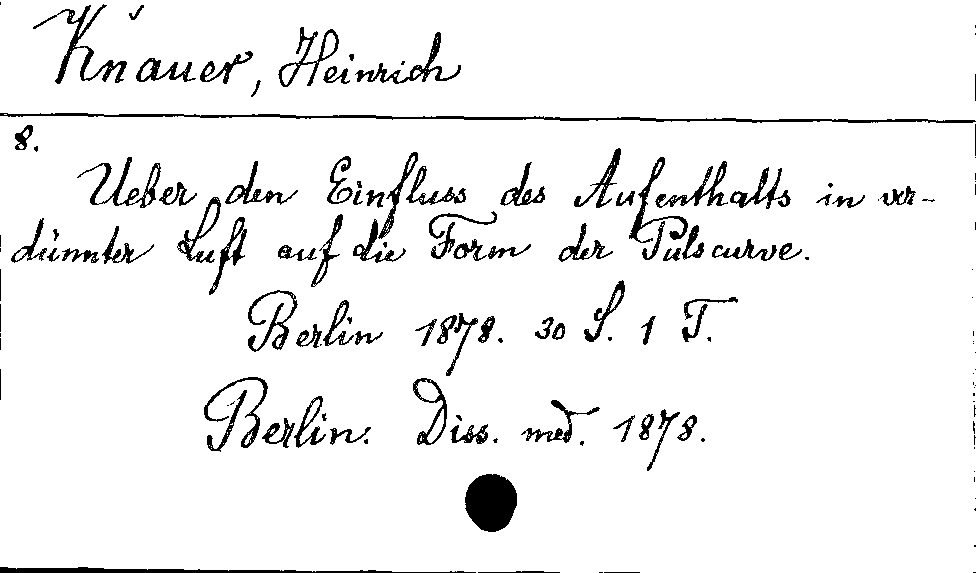 Knauer, Heinrich
8.
Ueber den Einfluss des Aufenthalts in ver-
dünnter Luft auf die Form der Pulscurve.
Berlin 1878. 30 S. 1 T.
Berlin. Diss. med. 1878.